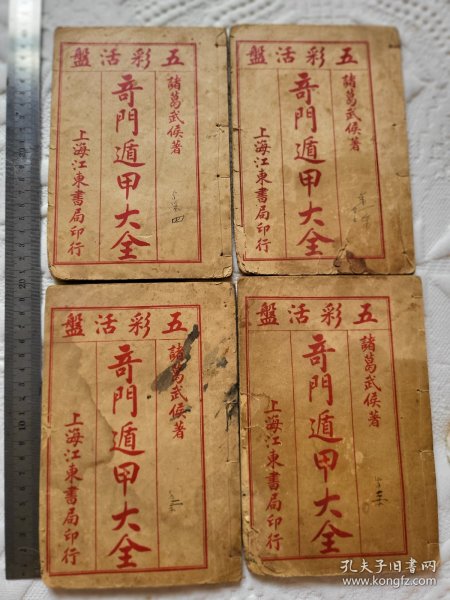 五彩活盤
諸葛武侯著
奇門遁甲大全
上海江東書局印行
四
五彩活盤
諸葛武侯著
奇門遁甲大全
上海江東書局印行
五彩活盤
諸葛武侯著
奇門遁甲大全
上海江東書局印行
二
五彩活盤
諸葛武侯著
奇門遁甲大全
上海江東書局印行
孔夫子旧书网
www.kongfz.com